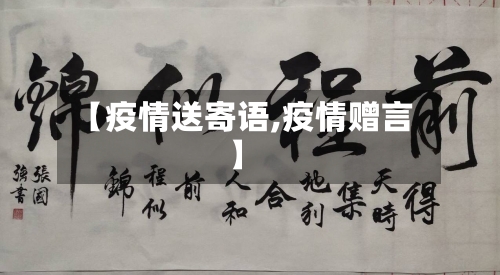 前程似錦
【疫情送寄语,疫情赠言
】
得天時集地利合人和前程似錦
張國
強書